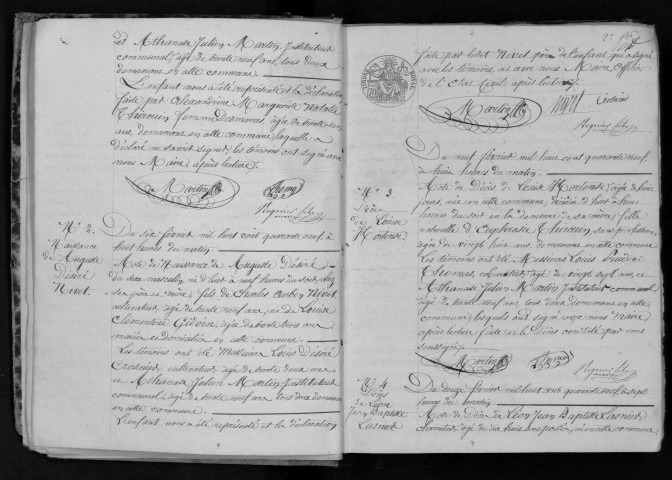 et Athanase Julien Martin Instituteur
communal, âgé de trente neuf ans, tous deux
demeurans en cette commune.
L'enfant nous a été représenté et la déclaration
faite par Alexandrine Marguerite Natalie
Thierrien femme Desmorets, âgée de trente
ans, demeurant en cette commune laquelle a
déclaré ne savoir signer, les témoins ont signé avec
nous Maire, après lecture.
Martin
Regnier fils
N° 2.
Naissance
de Auguste
Désiré
Nivet.
Du six février mil huit cent quarante neuf, à
huit heures du matin.
Acte de Naissance de Auguste Désiré
du sexe masculin, né d'hier à neuf heures du soir, chez
ses père et mère, fils de Charles Aubin Nivet
cultivateur, âgé de trente neuf ans, et de Louise
Clémentine Gidoin, âgée de trente trois ans
mariés, et domiciliés en cette commune.
Les témoins ont été Messieurs Louis Désiré
cultivateur, âgé de trente deux ans
et Athanase Julien Martin Instituteur
communal, âgé de trente neuf ans tous deux demeurans
en cette commune.
L'enfant nous a été représenté et la déclaration
faite par ledit Nivet père de l'enfant, qui a signé
avec les témoins, et avec nous Maire Officier
de l'Etat Civil, après lecture.
Martin Nivet
Regnier fils
N° 3
Décès
de Louise
Hortense.
Du neuf février mil huit cent quarante neuf,
à huit heures du matin.
Acte de Décès de Louise Hortense, âgée de huit
jours, née en cette commune, décédée d'hier à huit
heures du soir en la demeure de sa mère, fille
naturelle de Euphrasie Thierrien, sans profession,
âgée de vingt huit ans, demeurant en cette commune
Les témoins ont été Messieurs Louis
Thomas, âgé de vingt sept ans, et
Athanase Julien Martin Instituteur communal
âgé de trente neuf ans tous deux demeurans en cette
commune, lesquels ont signé avec nous Maire
après lecture faite et le Décès constaté par nous
soussigné.
Martin Thomas
Regnier fils
N° 4.
Décès
de Léon
Jean Baptiste
Lasnier
Du douze février mil huit cent quarante neuf, à sept
heures du matin.
Acte de Décès de Léon Jean Baptiste Lasnier
âgé de dix huit ans passés, né en cette commune,